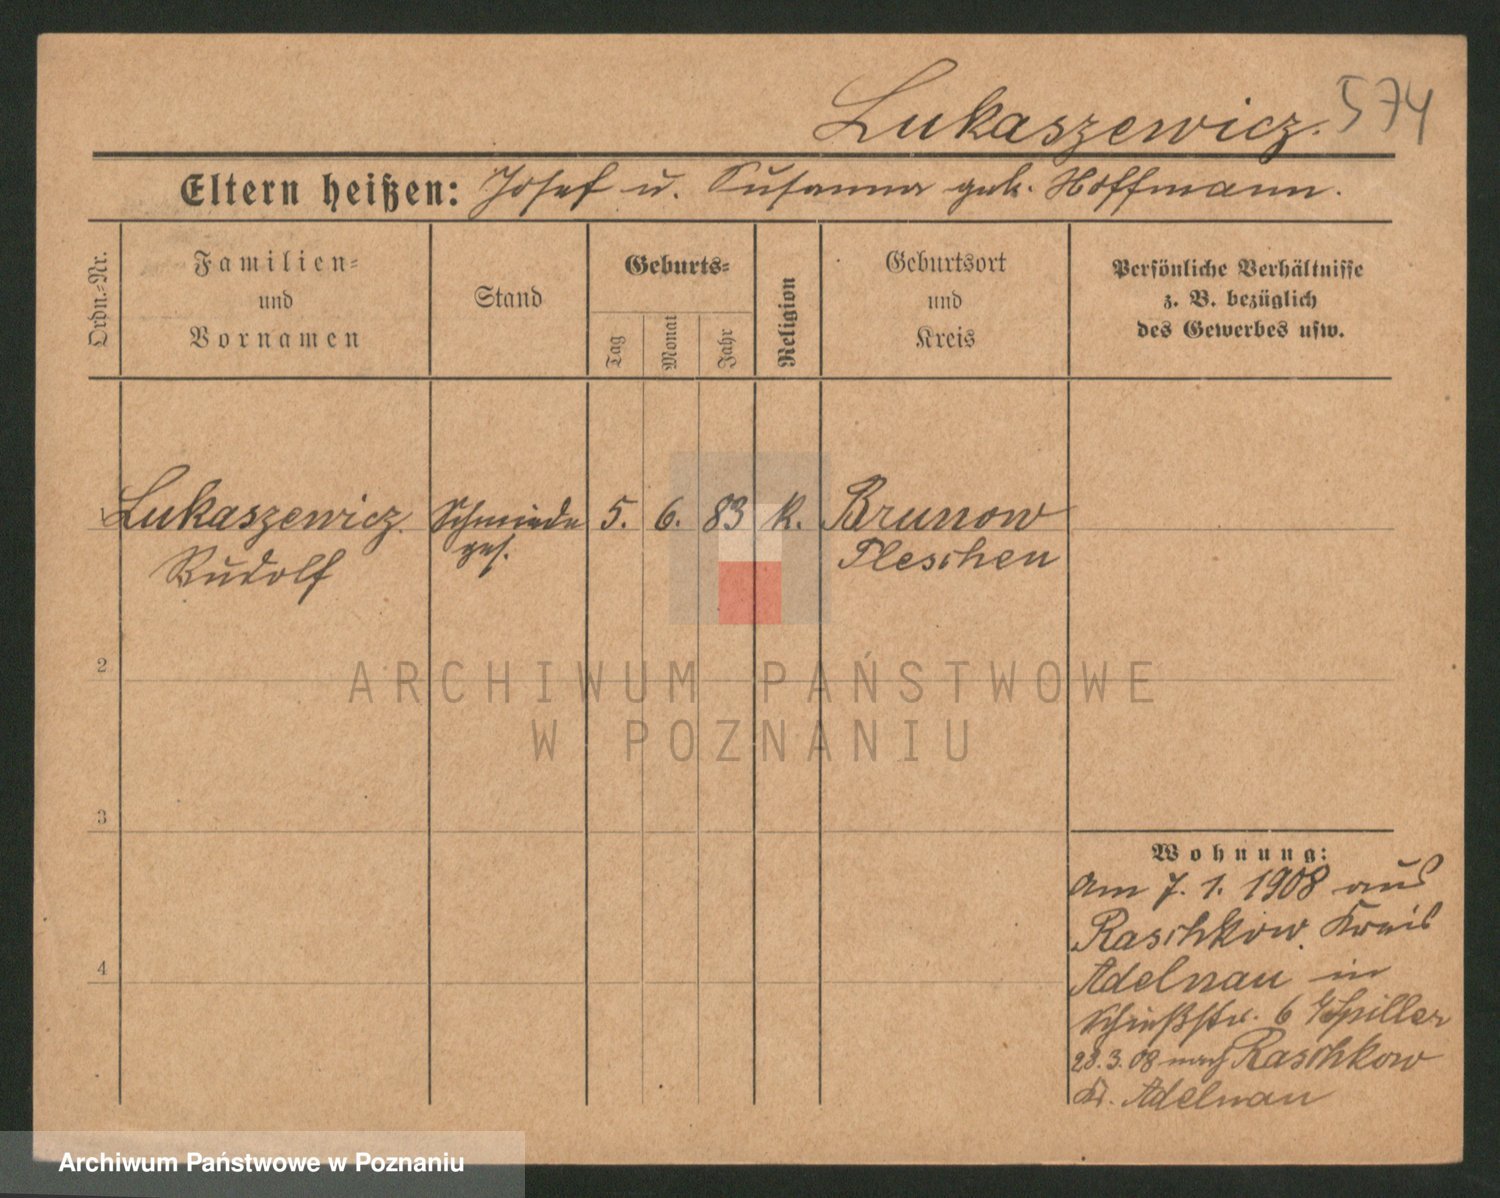 Lukaszewicz. 574
Eltern heißen: Josef u. Susanna geb. Hoffmann.
Ordn.-Nr.
Familien-
und
Vornamen
Stand
Geburts-
Tag
Monat
Jahr
Religion
Geburtsort
und
Kreis
Persönliche Verhältnisse
z. B. bezüglich
des Gewerbes usw.
Lukaszewicz Schmiede 5. 6. 83 k. Brunow
Rudolf ges. Pleschen
2
3
4
Wohnung:
Am 7. 1. 1908 aus
Raschkow, Kreis
Adelnau in
Schießstr. 6 Spiller
28.3.08 nach Raschkow
Kr. Adelnau
ARCHIWUM PAŃSTWOWE
W POZNANIU
Archiwum Państwowe w Poznaniu